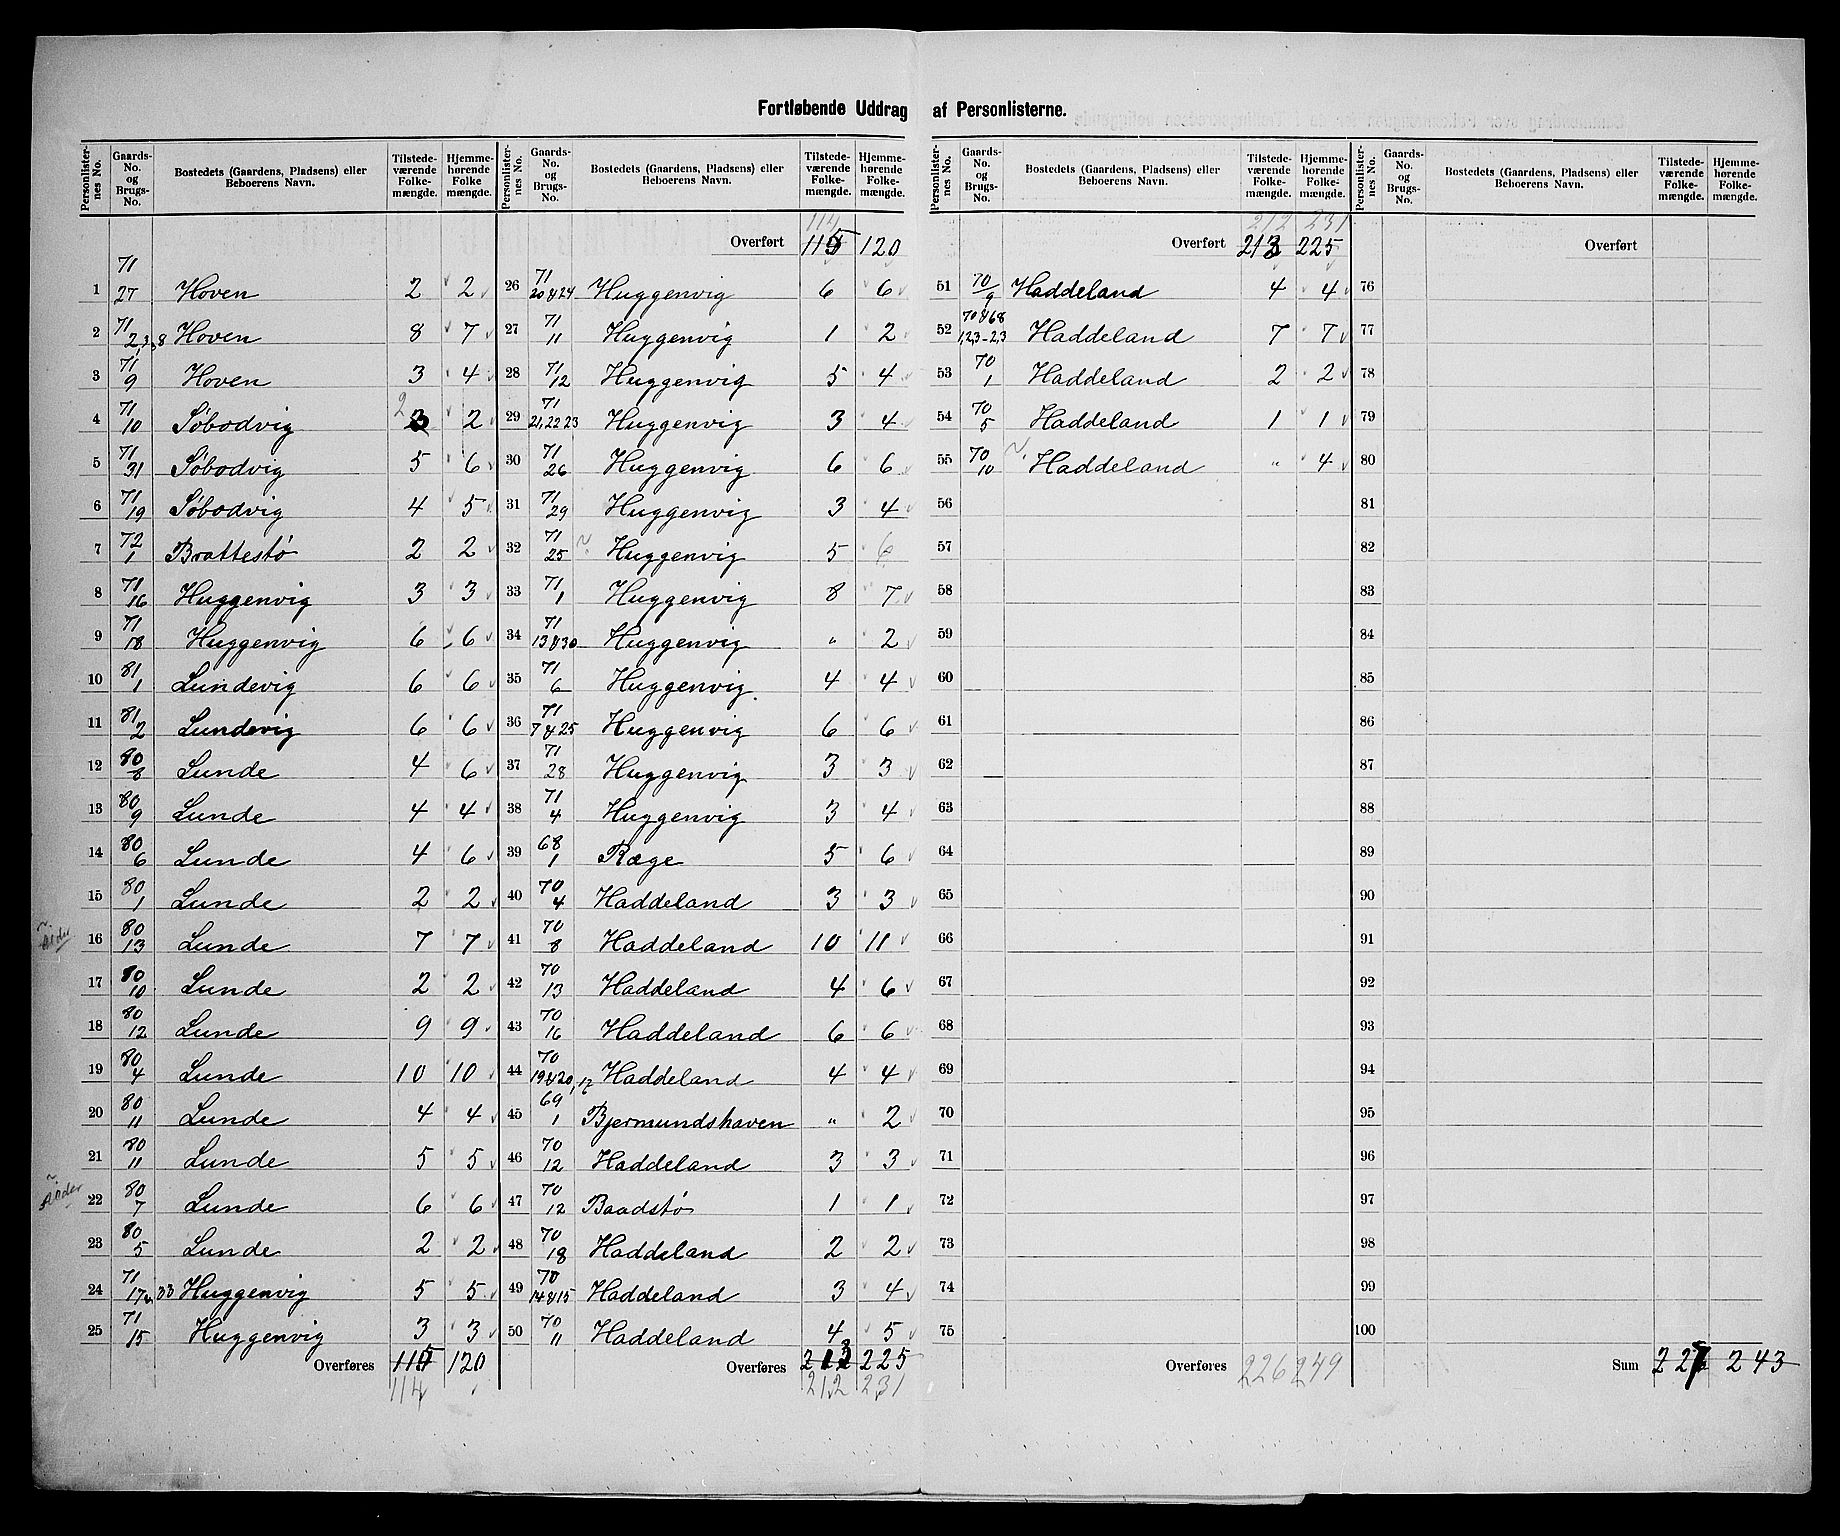 Fortløbende Uddrag af Personlisterne.
Personlister-nes No. | Gaards-No. og Brugs-No. | Bostedets (Gaardens, Pladsens) eller Beboerens Navn. | Tilstede-værende Folke-mængde. | Hjemme-hørende Folke mængde.
1 71/27 Hoven 2 2
2 71/2,3,8 Hoven 8 7
3 71/9 Hoven 3 4
4 71/10 Søbodvig 2 3 2
5 71/31 Søbodvig 5 6
6 71/19 Søbodvig 4 5
7 72/1 Brattestø 2 2
8 71/16 Huggenvig 3 3
9 71/18 Huggenvig 6 6
10 81/1 Lundevig 6 6
11 81/2 Lundevig 6 6
12 80/8 Lunde 4 6
13 80/9 Lunde 4 4
14 80/6 Lunde 4 6
15 80/1 Lunde 2 2
16 80/13 Lunde 7 7
17 80/10 Lunde 2 2
18 80/12 Lunde 9 9
19 80/4 Lunde 10 10
20 80/11 Lunde 4 4
21 80/11 Lunde 5 5
22 80/7 Lunde 6 6
23 80/5 Lunde 2 2
24 71/17 & 33 Huggenvig 5 5
25 71/15 Huggenvig 3 3
Overføres 115 120
114
Personlister-nes No. | Gaards-No. og Brugs-No. | Bostedets (Gaardens, Pladsens) eller Beboerens Navn. | Tilstede-værende Folke-mængde. | Hjemme-hørende Folke-mængde.
114
Overført 115 120
26 71/20 & 24 Huggenvig 6 6
27 71/11 Huggenvig 1 2
28 71/12 Huggenvig 5 4
29 71/21,22,23 Huggenvig 3 4
30 71/26 Huggenvig 6 6
31 71/29 Huggenvig 3 4
32 71/25 Huggenvig 5 6
33 71/1 Huggenvig 8 7
34 71/13 & 30 Huggenvig " 2
35 71/6 Huggenvig. 4 4
36 71/7 & 25 Huggenvig 6 6
37 71/28 Huggenvig 3 3
38 71/4 Huggenvig 3 4
39 68/1 Ræge 5 6
40 70/4 Haddeland 3 3
41 70/8 Haddeland 10 11
42 70/13 Haddeland 4 6
43 70/16 Haddeland 6 6
44 70/19 & 20, 17 Haddeland 4 4
45 69/1 Bjermundshaven " 2
46 70/12 Haddeland 3 3
47 70/12 Baadstø 1 1
48 70/18 Haddeland 2 2
49 70/14 & 15 Haddeland 3 4
50 70/11 Haddeland 4 5
Overføres 213 225
212 231
Personlister-nes No. | Gaards-No. og Brugs-No. | Bostedets (Gaardens, Pladsens) eller Beboerens Navn. | Tilstede-værende Folke-mængde. | Hjemme-hørende Folke-mængde.
212 231
Overført 213 225
51 70/9 Haddeland 4 4
52 70 & 68/1,2,3-2,3 Haddeland 7 7
53 70/1 Haddeland 2 2
54 70/5 Haddeland 1 1
55 70/10 Haddeland " 4
56
57
58
59
60
61
62
63
64
65
66
67
68
69
70
71
72
73
74
75
Overføres 226 249
Personlister-nes No. | Gaards-No. og Brugs-No. | Bostedets (Gaardens, Pladsens) eller Beboerens Navn. | Tilstede-værende Folke-mængde. | Hjemme-hørende Folke-mængde.
Overført
76
77
78
79
80
81
82
83
84
85
86
87
88
89
90
91
92
93
94
95
96
97
98
99
100
Sum 227 243